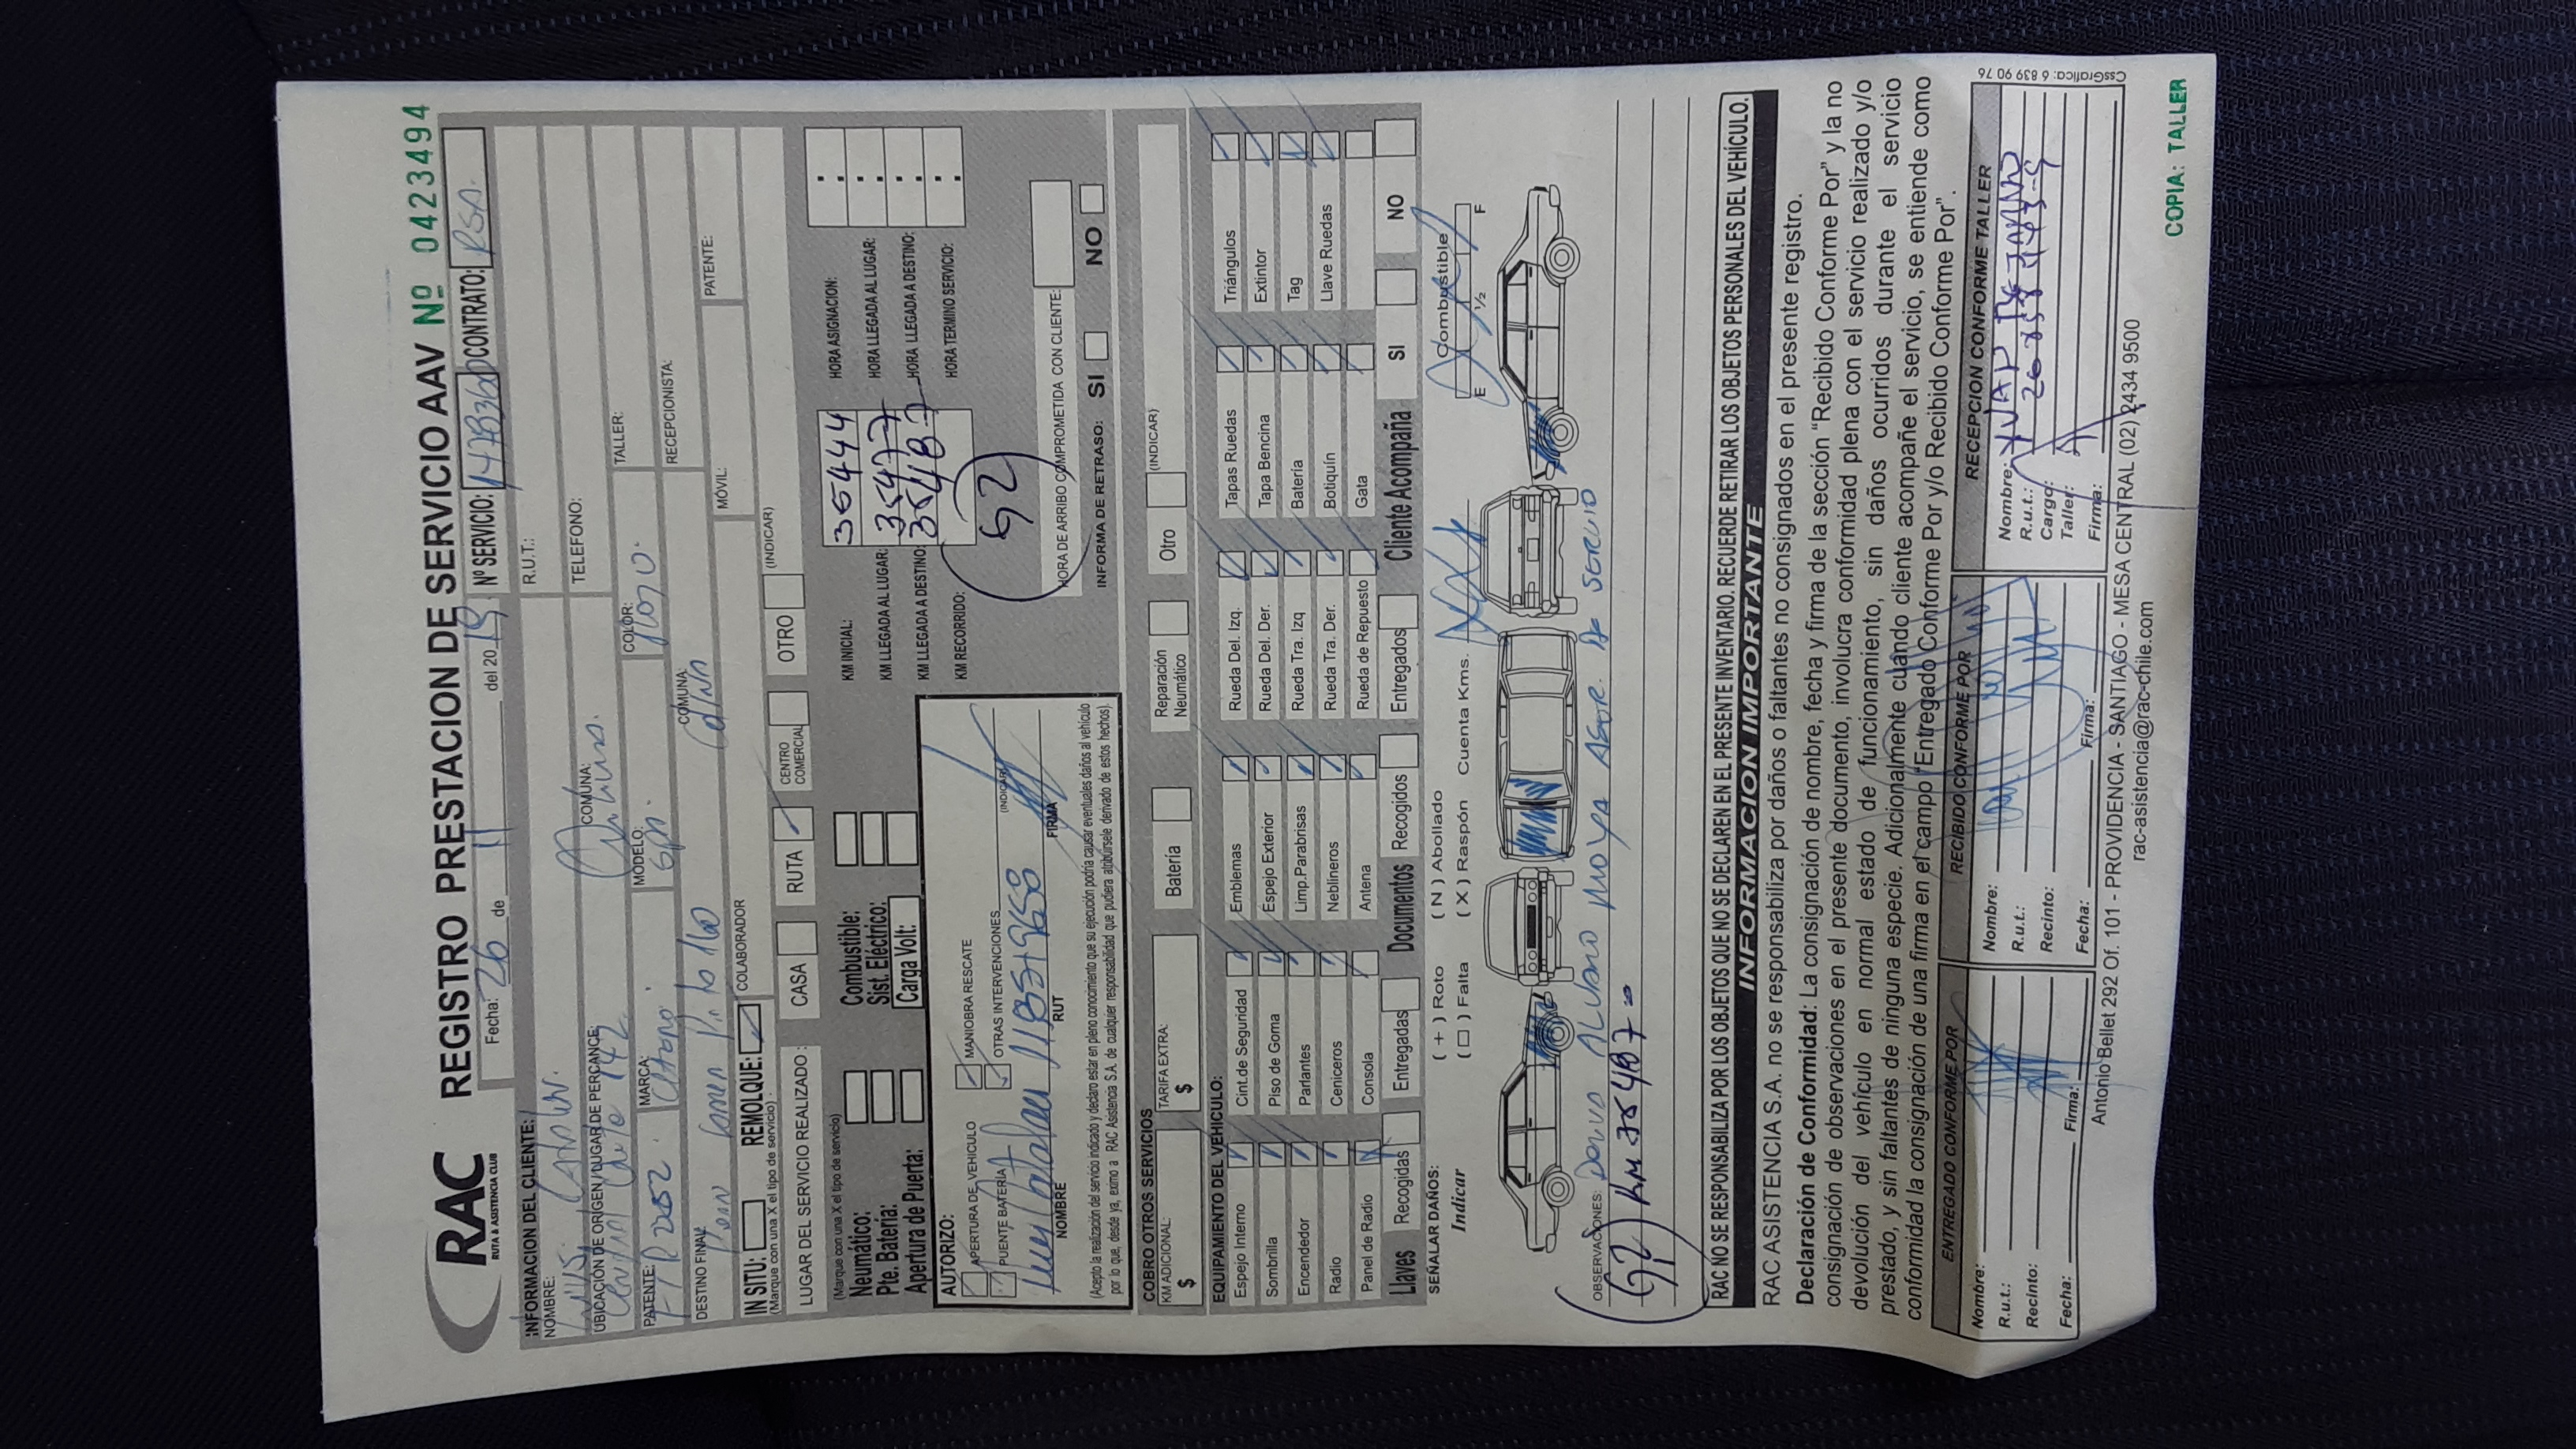 RAC
RUTA & ASISTENCIA CLUB
REGISTRO PRESTACION DE SERVICIO AAV Nº 0423494
Fecha: 26 de 11 del 20 19 Nº SERVICIO: CONTRATO: RSA.
INFORMACION DEL CLIENTE:
NOMBRE: R.U.T.:
UBICACIÓN DE ORIGEN / LUGAR DE PERCANCE: COMUNA: TELEFONO:
PATENTE: MARCA: MODELO: COLOR: TALLER:
DESTINO FINAL: COMUNA: RECEPCIONISTA:
IN SITU: REMOLQUE: COLABORADOR MÓVIL: PATENTE:
(Marque con una X el tipo de servicio)
LUGAR DEL SERVICIO REALIZADO : CASA RUTA CENTRO COMERCIAL OTRO (INDICAR)
(Marque con una X el tipo de servicio)
Neumático: Combustible:
Pte. Batería: Sist. Eléctrico:
Apertura de Puerta: Carga Volt:
KM INICIAL: 35444 HORA ASIGNACION:
KM LLEGADA AL LUGAR: 35477 HORA LLEGADA AL LUGAR:
KM LLEGADA A DESTINO: 35487 HORA LLEGADA A DESTINO:
KM RECORRIDO: HORA TERMINO SERVICIO:
G2
HORA DE ARRIBO COMPROMETIDA CON CLIENTE:
INFORMA DE RETRASO: SI NO
AUTORIZO:
APERTURA DE VEHICULO MANIOBRA RESCATE
PUENTE BATERÍA OTRAS INTERVENCIONES (INDICAR)
NOMBRE RUT FIRMA
(Acepto la realización del servicio indicado y declaro estar en pleno conocimiento que su ejecución podría causar eventuales daños al vehículo
por lo que, desde ya, eximo a RAC Asistencia S.A. de cualquier responsabilidad que pudiera atribuírsele derivado de estos hechos).
COBRO OTROS SERVICIOS
KM ADICIONAL: $ TARIFA EXTRA: $ Batería Reparación Neumático Otro (INDICAR)
EQUIPAMIENTO DEL VEHICULO:
Espejo Interno Cint.de Seguridad Emblemas Rueda Del. Izq. Tapas Ruedas Triángulos
Sombrilla Piso de Goma Espejo Exterior Rueda Del. Der. Tapa Bencina Extintor
Encendedor Parlantes Limp.Parabrisas Rueda Tra. Izq Batería Tag
Radio Ceniceros Neblineros Rueda Tra. Der. Botiquín Llave Ruedas
Panel de Radio Consola Antena Rueda de Repuesto Gata
Llaves Recogidas Entregadas Documentos Recogidos Entregados Cliente Acompaña SI NO
SEÑALAR DAÑOS: ( + ) Roto ( N ) Abollado Combustible
Indicar ( □ ) Falta ( X ) Raspón Cuenta Kms. E 1/2 F
OBSERVACIONES: DAVID ALVARO MOYA ASOR. DE SERVICIO
G2 KM 35487
RAC NO SE RESPONSABILIZA POR LOS OBJETOS QUE NO SE DECLAREN EN EL PRESENTE INVENTARIO. RECUERDE RETIRAR LOS OBJETOS PERSONALES DEL VEHÍCULO.
INFORMACION IMPORTANTE
RAC ASISTENCIA S.A. no se responsabiliza por daños o faltantes no consignados en el presente registro.
Declaración de Conformidad: La consignación de nombre, fecha y firma de la sección "Recibido Conforme Por" y la no
consignación de observaciones en el presente documento, involucra conformidad plena con el servicio realizado y/o
devolución del vehículo en normal estado de funcionamiento, sin daños ocurridos durante el servicio
prestado, y sin faltantes de ninguna especie. Adicionalmente cuando cliente acompañe el servicio, se entiende como
conformidad la consignación de una firma en el campo "Entregado Conforme Por y/o Recibido Conforme Por".
ENTREGADO CONFORME POR RECIBIDO CONFORME POR RECEPCION CONFORME TALLER
Nombre: Nombre: Nombre:
R.u.t.: R.u.t.: R.u.t.:
Recinto: Recinto: Cargo:
Taller:
Fecha: Firma: Fecha: Firma: Firma:
Antonio Bellet 292 Of. 101 - PROVIDENCIA - SANTIAGO - MESA CENTRAL (02) 2434 9500
rac-asistencia@rac-chile.com
CssGrafica: 6 839 90 76
COPIA: TALLER